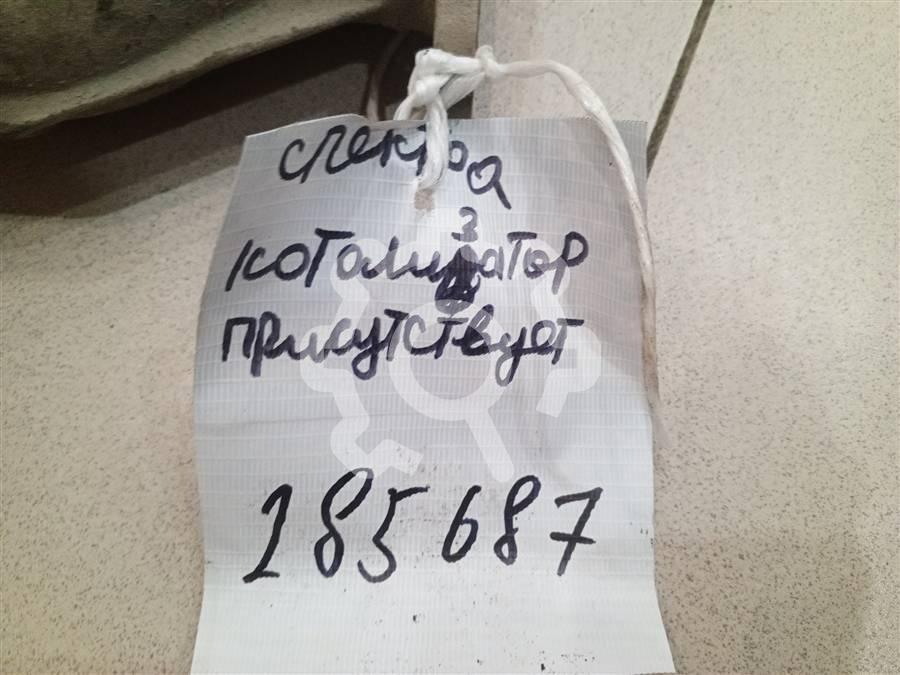 спектра
котализатор
присутствует
185687